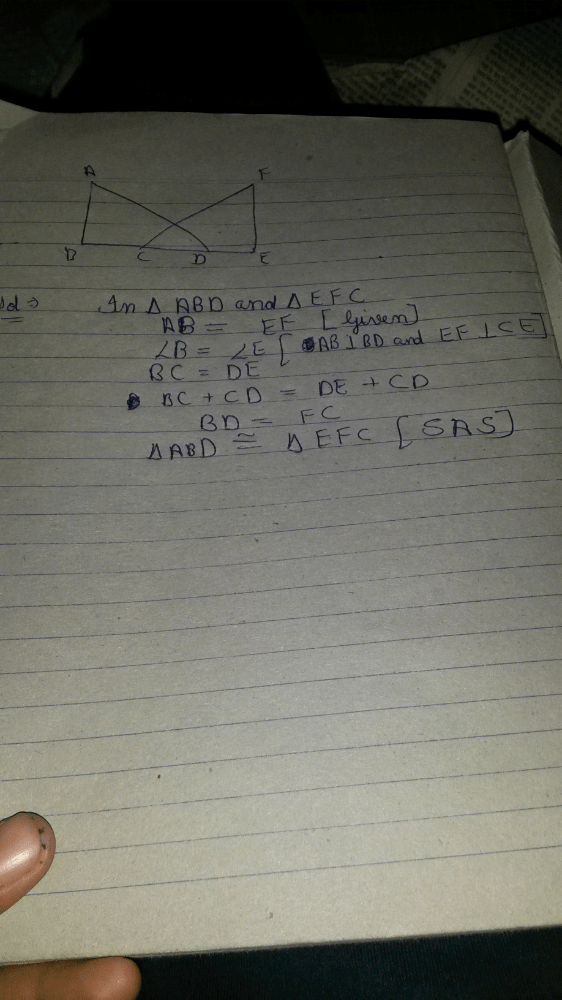 A F
B C D E
In Δ ABD and Δ EFC
AB = EF [Given]
∠B = ∠E [AB⊥BD and EF⊥CE]
BC = DE
BC + CD = DE + CD
BD = FC
ΔABD ≅ ΔEFC [SAS]